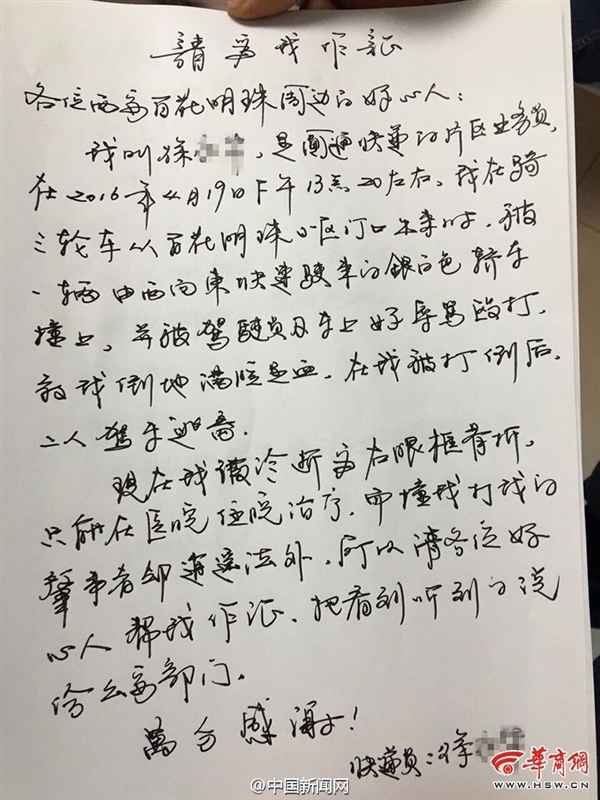 請为我作证
各位西安百花明珠周边的好心人：
我叫徐，是圆通快递的片区业务员，
在2016年4月19日下午13点20左右，我在骑
三轮车从百花明珠小区门口出来时，被
一辆由西向东快速驶来的銀白色轿车
撞上，并被驾驶员及车上好辱骂殴打，
致我倒地满脸是血，在我被打倒后，
二人驾车逃离。
现在我诊断为右眼框骨折，
只能在医院住院治疗，而撞我打我的
肇事者却逍遥法外，所以请各位好
心人帮我作证，把看到听到的说
给公安部门。
萬分感谢！
快递员：徐
@中国新闻网
華商網
WWW.HSW.CN